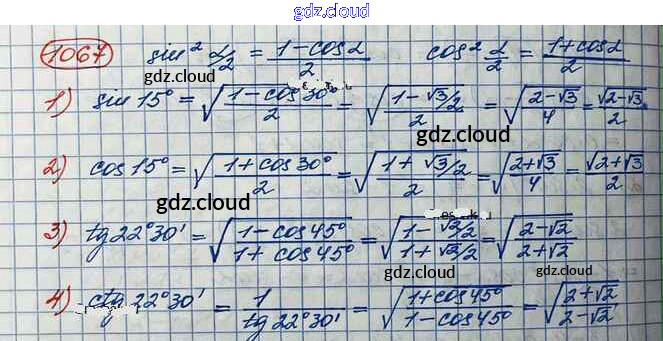 gdz.cloud
1067 sin² α/2 = (1-cosα)/2 cos² α/2 = (1+cosα)/2
gdz.cloud
1) sin 15° = √((1-cos 30°)/2) = √((1-√3/2)/2) = √((2-√3)/4) = √(2-√3)/2
gdz.cloud
2) cos 15° = √((1+cos 30°)/2) = √((1+√3/2)/2) = √((2+√3)/4) = √(2+√3)/2
gdz.cloud
3) tg 22°30' = √((1-cos 45°)/(1+cos 45°)) = √((1-√2/2)/(1+√2/2)) = √((2-√2)/(2+√2))
gdz.cloud gdz.cloud
4) ctg 22°30' = 1/(tg 22°30') = √((1+cos 45°)/(1-cos 45°)) = √((2+√2)/(2-√2))
gdz.cloud